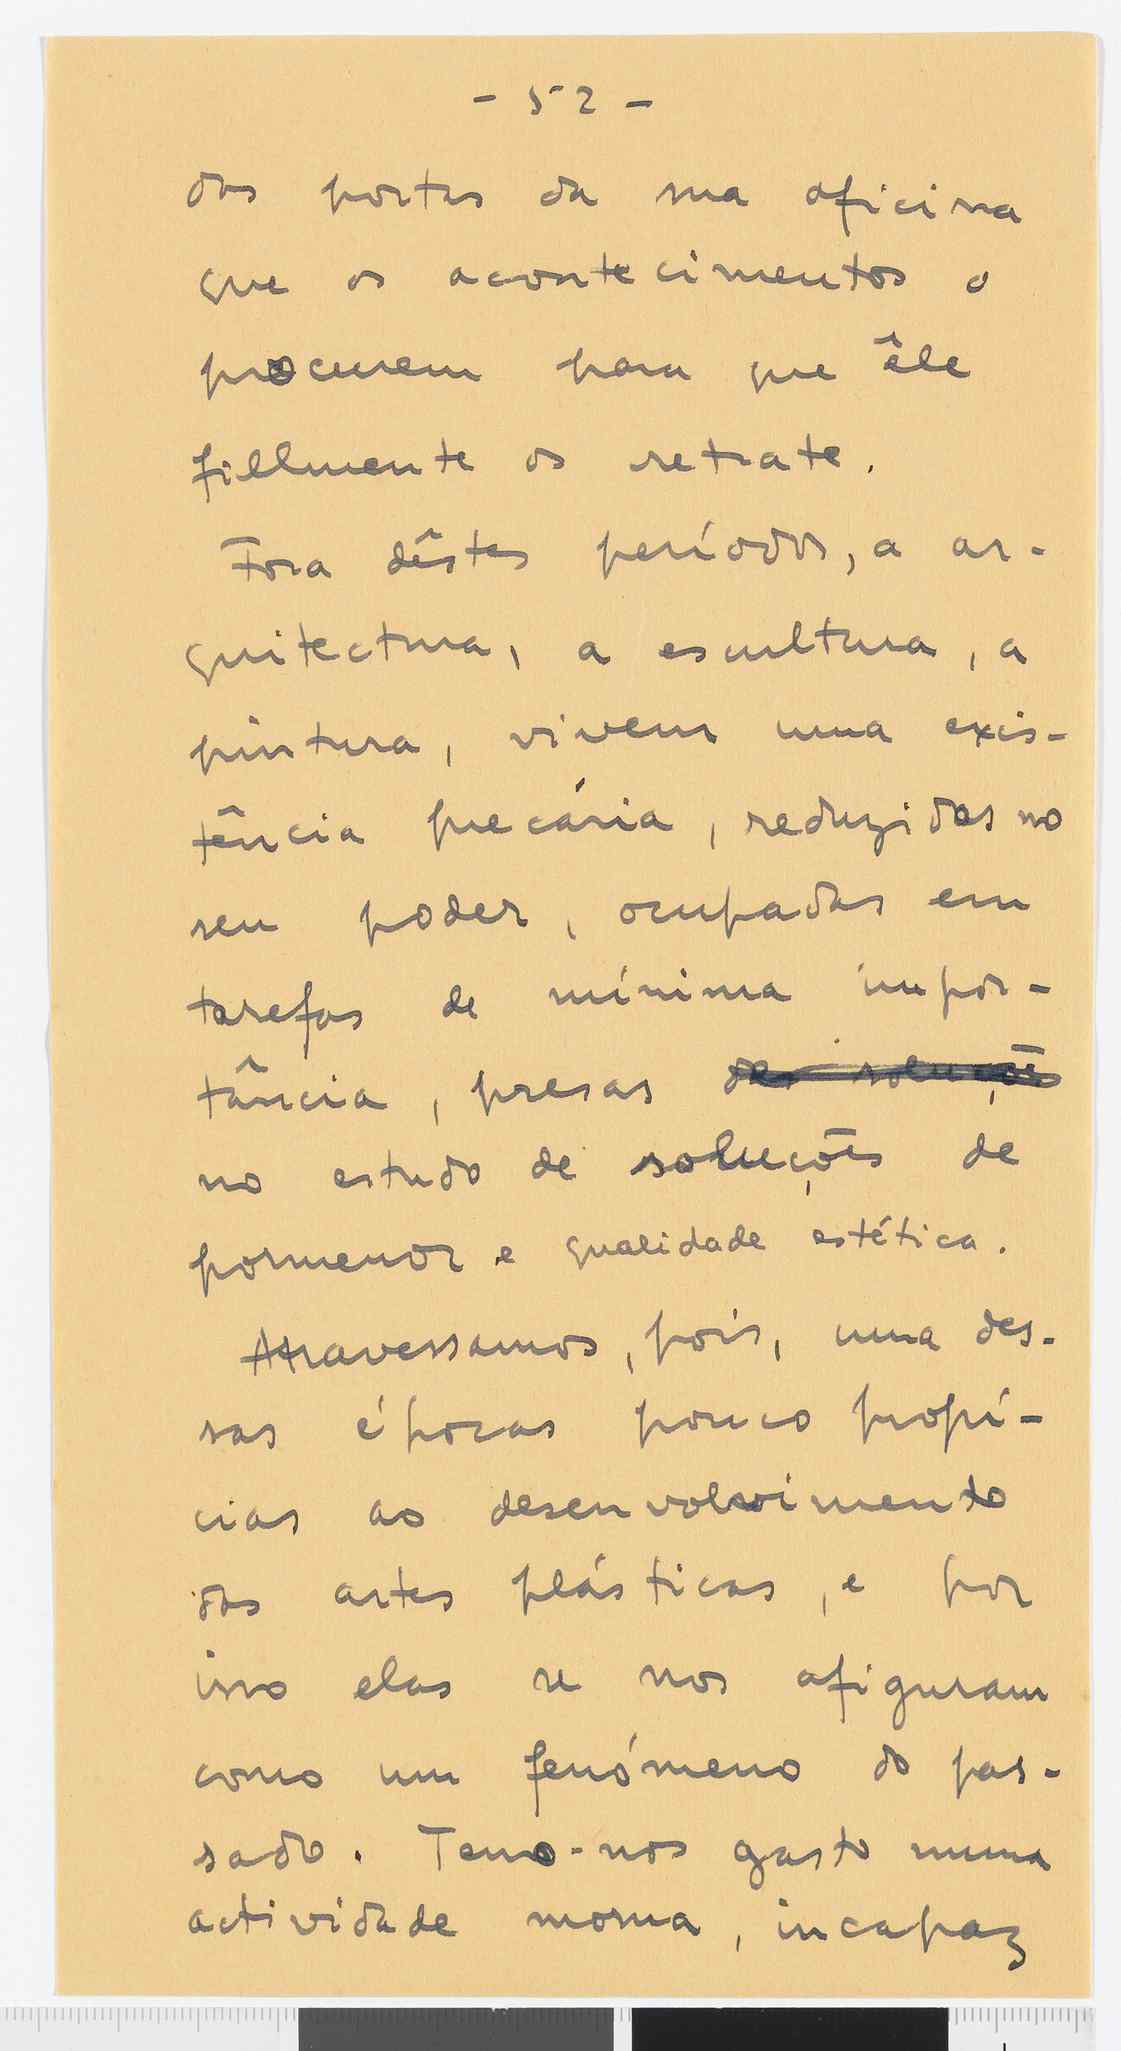 - 52 -
das portas da sua oficina
que os acontecimentos o
procurem para que êle
fielmente os retrate.
Fora dêstes períodos, a ar-
quitectura, a escultura, a
pintura, vivem uma exis-
tência precária, reduzidas no
seu poder, ocupadas em
tarefas de mínima impor-
tância, presas das soluções
no estudo de soluções de
pormenor e qualidade estética.
Atravessamos, pois, uma des-
sas épocas pouco propí-
cias ao desenvolvimento
das artes plásticas, e por
isso elas se nos afiguram
como um fenómeno do pas-
sado. Temo-nos gasto numa
actividade morna, incapaz